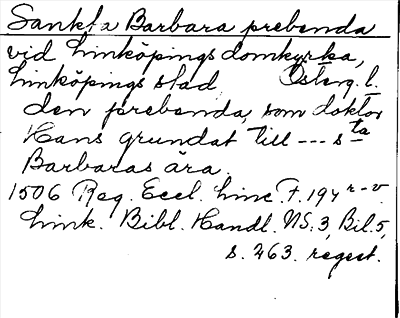 Sankta Barbara prebenda
vid Linköpings domkyrka,
Linköpings stad. Österg. l.
den prebenda, som doktor
Hans grundat till --- s ta
Barbaras ära.
1506 Reg. Eccl. Linc. F. 194 r-v.
Link. Bibl. Handl. NS: 3, Bil. 5,
s. 263. regest.